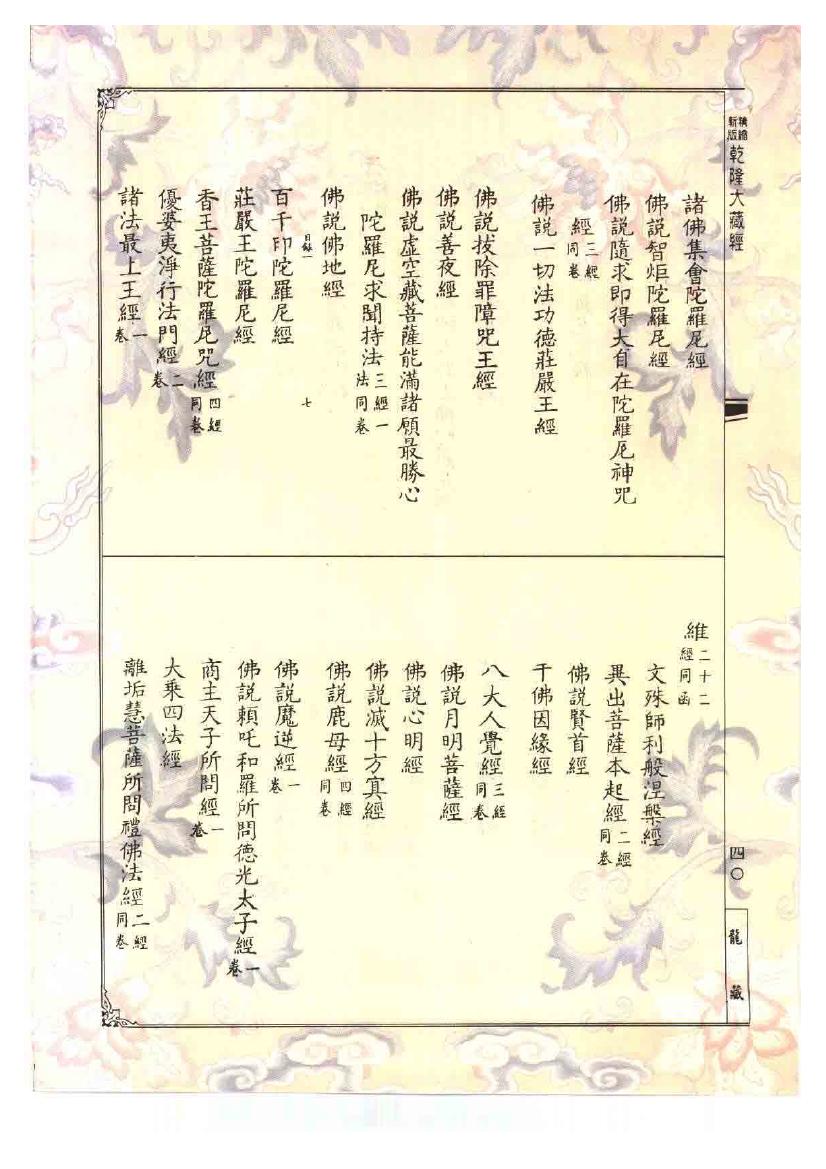 精縮新版 乾隆大藏經
諸佛集會陀羅尼經
佛說智炬陀羅尼經
佛說隨求即得大自在陀羅尼神咒
經三經同卷
佛說一切法功德莊嚴王經
佛說拔除罪障咒王經
佛說善夜經
佛說虛空藏菩薩能滿諸願最勝心
陀羅尼求聞持法三經一法同卷
佛說佛地經
目錄一 七
百千印陀羅尼經
莊嚴王陀羅尼經
香王菩薩陀羅尼咒經四經同卷
優婆夷淨行法門經二卷
諸法最上王經一卷
維二十二經同函
文殊師利般涅槃經
異出菩薩本起經二經同卷
佛說賢首經
千佛因緣經
八大人覺經三經同卷
佛說月明菩薩經
佛說心明經
佛說滅十方冥經
佛說鹿母經四經同卷
佛說魔逆經一卷
佛說賴吒和羅所問德光太子經一卷
商主天子所問經一卷
大乘四法經
離垢慧菩薩所問禮佛法經二經同卷
四〇
龍藏